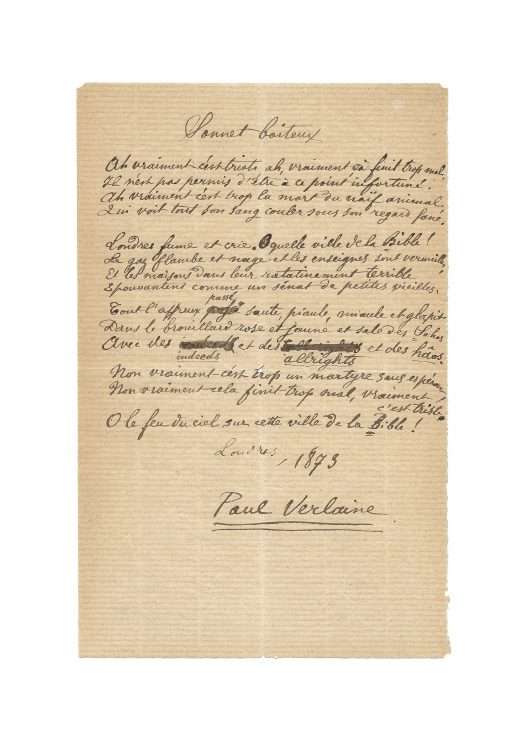 Sonnet boiteux
Ah vraiment c'est triste, ah, vraiment ça finit trop mal.
Il n'est pas permis d'être à ce point infortuné.
Ah vraiment c'est trop la mort du naïf animal
Qui voit tout son sang couler sous son regard fané.
Londres fume et crie. O quelle ville de la Bible !
Le gaz flambe et nage et les enseignes sont vermeilles.
Et les maisons dans leur ratatinement terrible
Epouvantent comme un sénat de petites vieilles.
Tout l'affreux passé saute, piaule, miaule et glapit
Dans le brouillard rose et jaune et sale des Sohos
Avec des indeeds et des allrights et des hâos.
Non vraiment c'est trop un martyre sans espérance
Non vraiment cela finit trop mal, vraiment
c'est triste
O le feu du ciel sur cette ville de la Bible !
Londres, 1873
Paul Verlaine